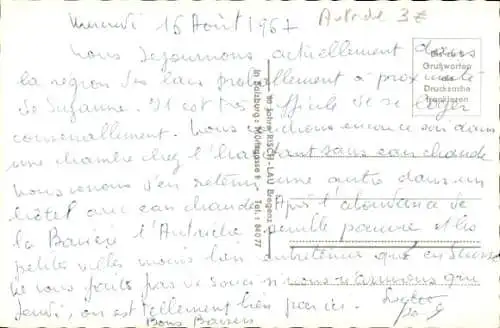 Mercredi 16 Août 1967
Autriche 3€
Nous séjournons actuellement dans
la région des lacs probablement à proximité
de Suzanne. Il est très difficile de se loger
convenablement. Nous couchons encore ce soir dans
une chambre chez l'habitant sans eau chaude
nous venons d'en retenir une autre dans un
hôtel avec eau chaude. Après l'abondance de
la Bavière l'Autriche semble pauvre et les
petites villes moins bien entretenues qu'en Suisse
Ne vous faites pas de souci si nous ne rentrons que
Jeudi, on est tellement bien par ici.
Bons Baisers
Mit bis 5
Grußworten
als
Drucksache
frankieren
80 Jahre RISCH-LAU Bregenz
in Salzburg: Tel.: 84077